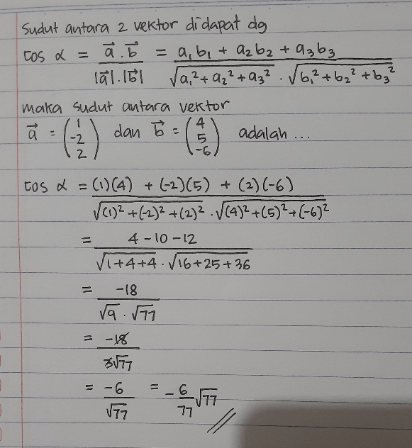 Sudut antara 2 vektor didapat dg
cos α = a⃗ . b⃗ / |a⃗|.|b⃗| = a₁b₁ + a₂b₂ + a₃b₃ / √a₁²+a₂²+a₃² . √b₁²+b₂²+b₃²
maka sudut antara vektor
a⃗ = (1 -2 2) dan b⃗ = (4 5 -6) adalah ...
cos α = (1)(4) + (-2)(5) + (2)(-6) / √(1)²+(-2)²+(2)² . √(4)²+(5)²+(-6)²
= 4-10-12 / √1+4+4 . √16+25+36
= -18 / √9 . √77
= -18 / 3√77
= -6 / √77 = -6/77 √77